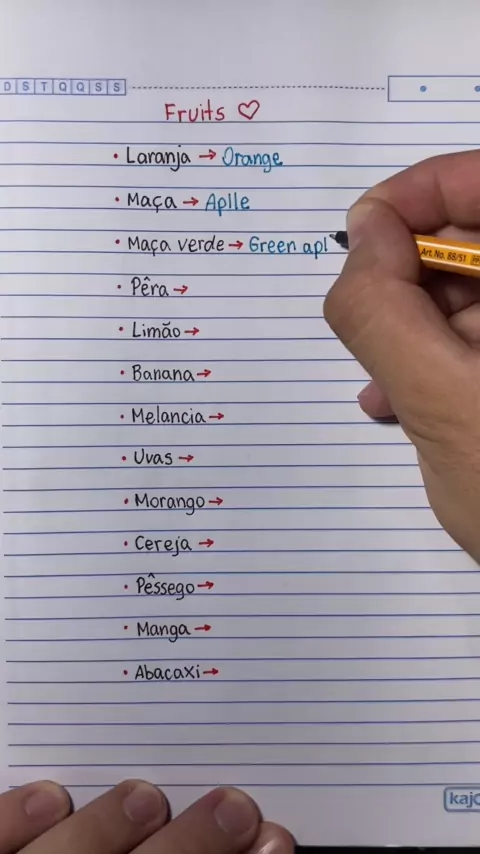 D S T Q Q S S
Fruits ♡
• Laranja → Orange
• Maça → Aplle
• Maça verde → Green apl
• Pêra →
• Limão →
• Banana →
• Melancia →
• Uvas →
• Morango →
• Cereja →
• Pêssego →
• Manga →
• Abacaxi →
Art. No. 88/51
kajo